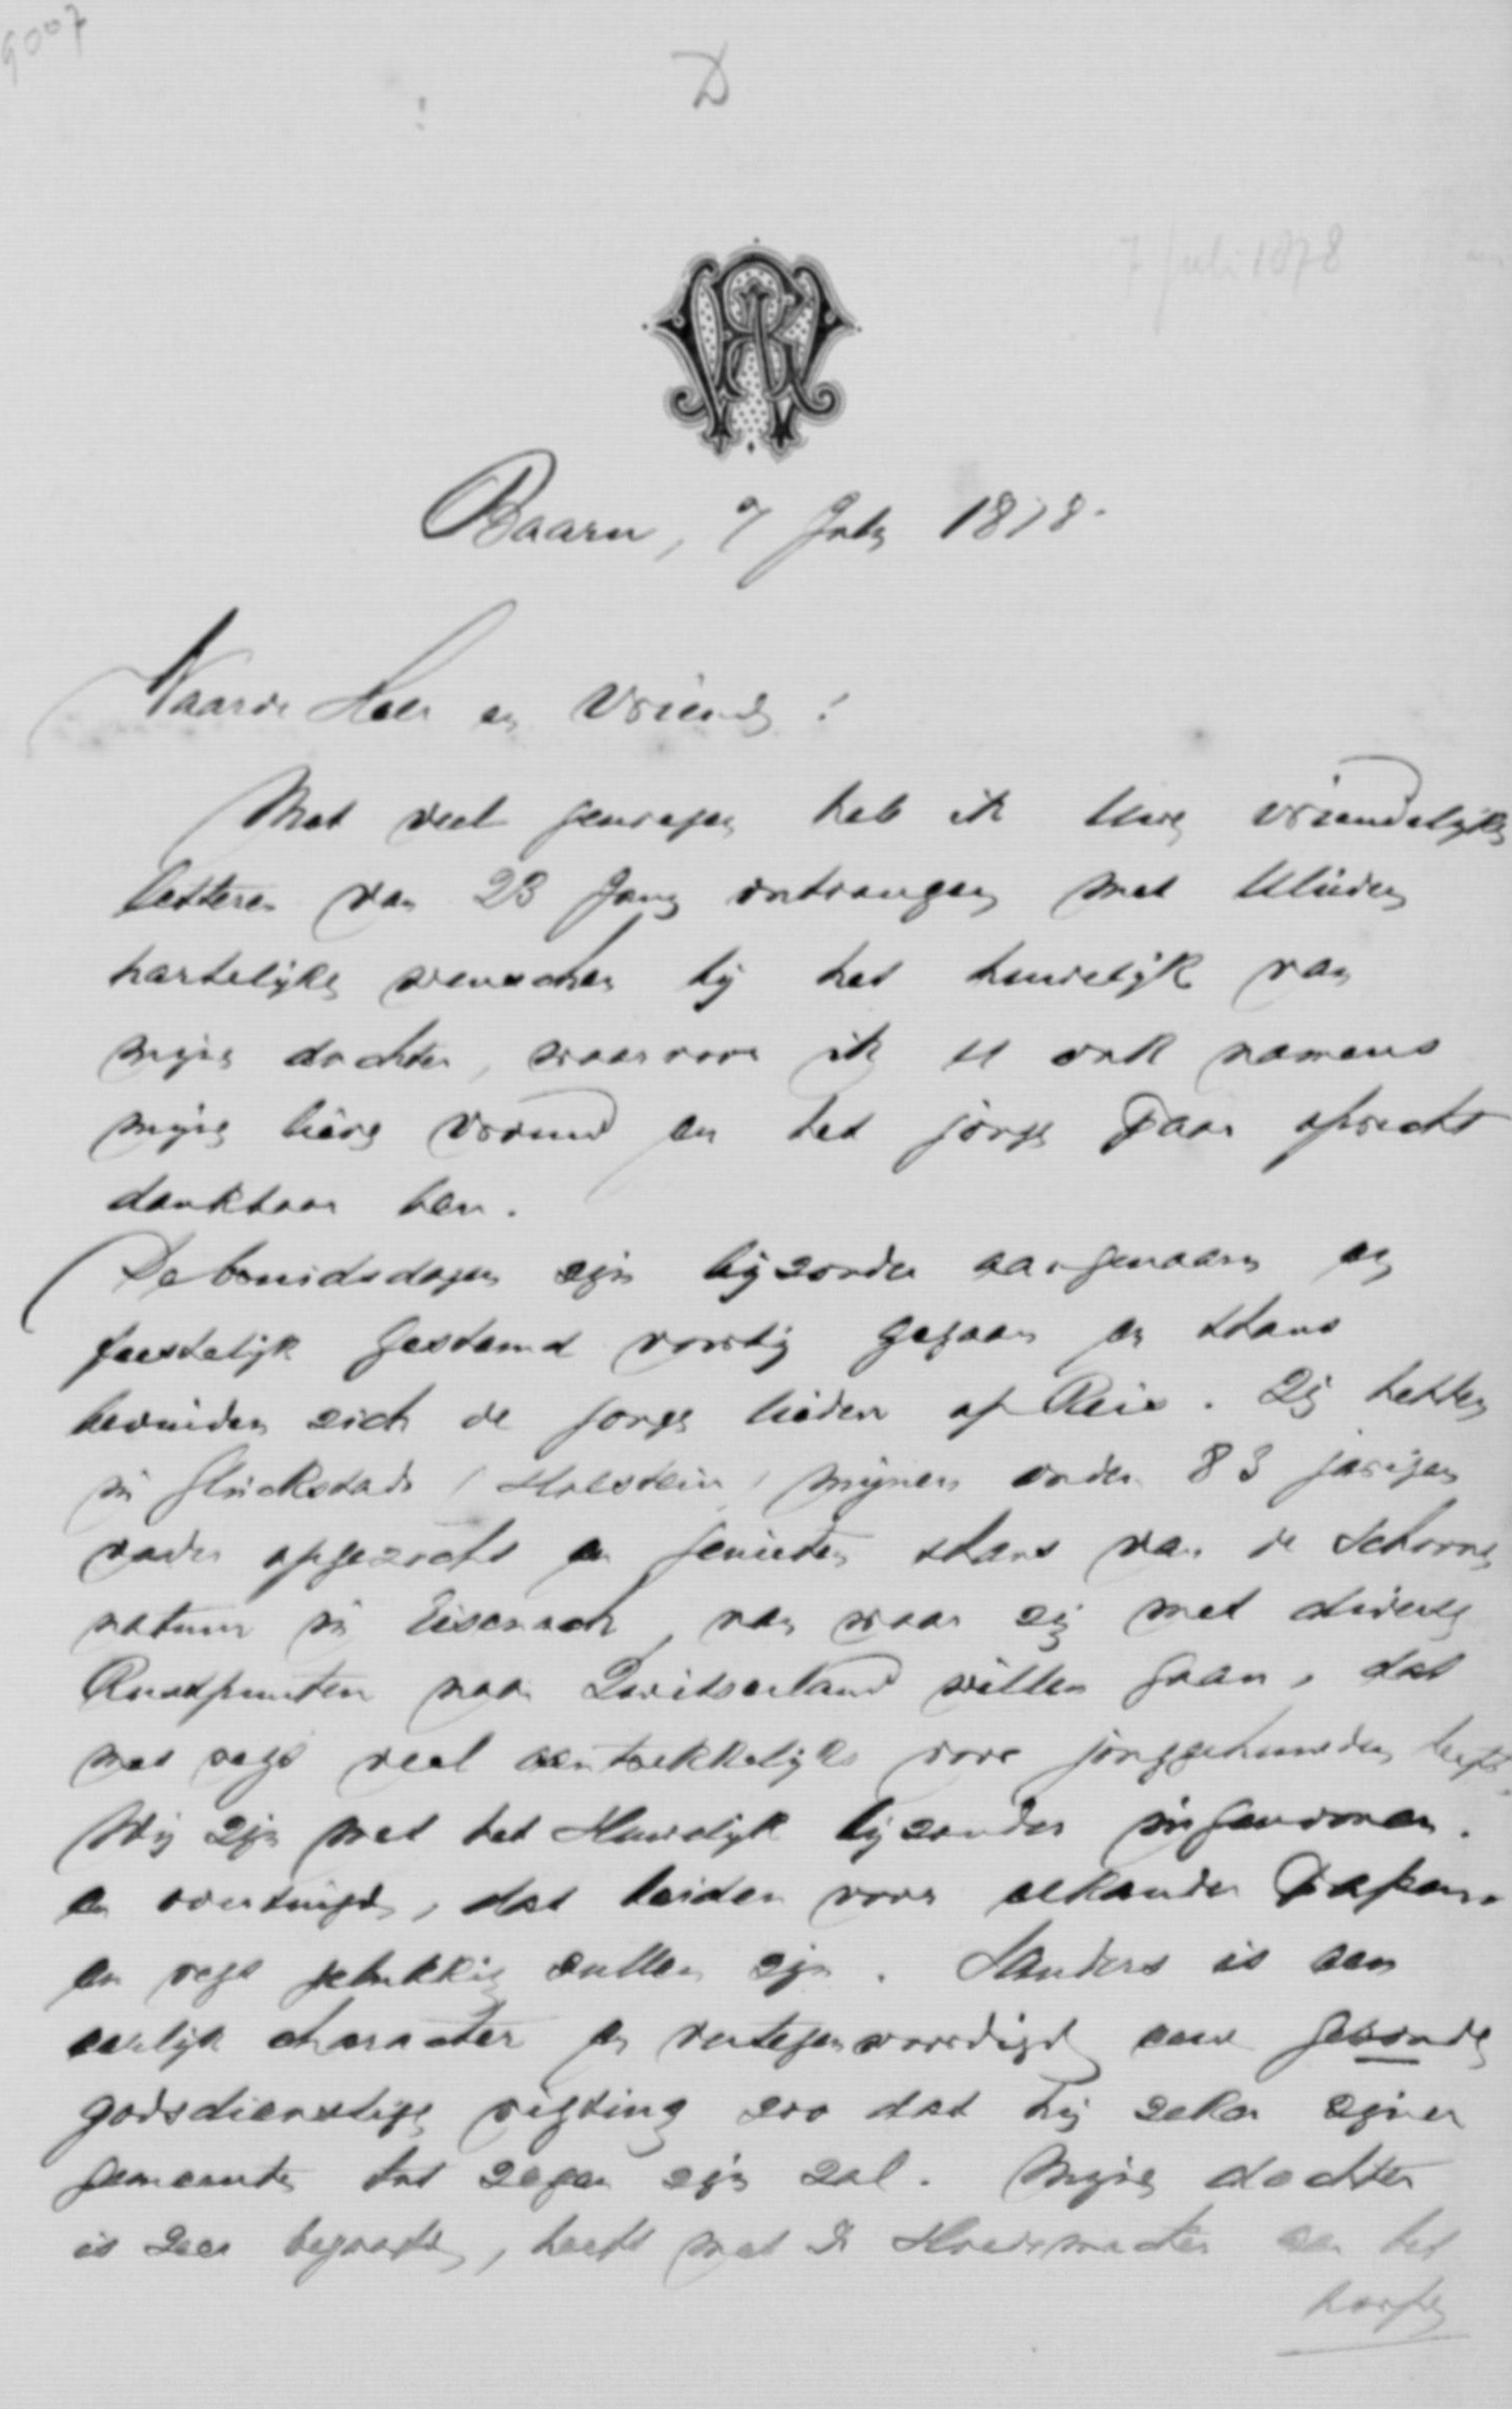 9007
D
7 Juli 1878
Baarn, 7 July 1878.
Waarde Heer en Vriend!
Met veel genoegen heb ik Uwe vriendelijke
letteren van 23 Juny ontvangen met Ulieder
hartelijke wenschen bij het huwelijk van
mijne dochter, waarvoor ik U ook namens
mijne lieve vrouw en het jonge paar oprecht
dankbaar ben.
De bruidsdagen zijn bijzonder aangenaam en
feestelijk gestemd voorbij gegaan en thans
bevinden zich de jonge lieden op Reis. Zij hebben
in Glückstadt (Holstein) mijnen ouden 83 jarigen
vader opgezocht en genieten thans van de schoone
natuur in Eisenach, van waar zij met diverse
Rustpunten naar Zwitserland willen gaan, dat
met regt veel aantrekkelijks voor jonggehuwden heeft.
Wij zijn met het Huwelijk bijzonder ingenomen.
en overtuigd, dat beiden voor elkander passen
en regt gelukkig zullen zijn. Sanders is een
eerlijk character en vertegenwoordigt eene gezonde
godsdienstige rigting zoo dat hij zeker zijner
gemeente tot zegen zijn zal. Mijne dochter
is zeer begaafd, heeft met Dr Hoedemaker aan het
hoofd